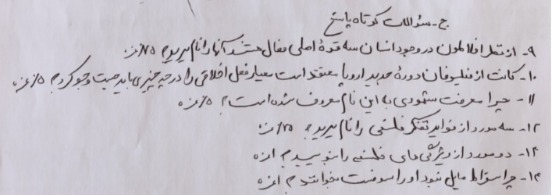 ج- سئوالات کوتاه پاسخ
۹- از نظر افلاطون در وجود انسان سه قوهٔ اصلی فعال هستند آنها را نام ببرید؟ ۰/۷۵ن:
۱۰- کانت از فیلسوفان دورهٔ جدید اروپا معتقد است معیار فعل اخلاقی را در چه چیزی باید جست و جو کرد؟ ۰/۵ن:
۱۱- چرا معرفت شهودی به این نام معروف شده است؟ ۰/۵ن:
۱۲- سه مورد از فواید تفکر فلسفی را نام ببرید؟ ۰/۷۵ن:
۱۳- دو مورد از ویژگی های فلسفه را بنویسید؟ ۱ن:
۱۴- چرا سقراط مایل نبود او را سوفیست بخوانند؟ ۱ن: